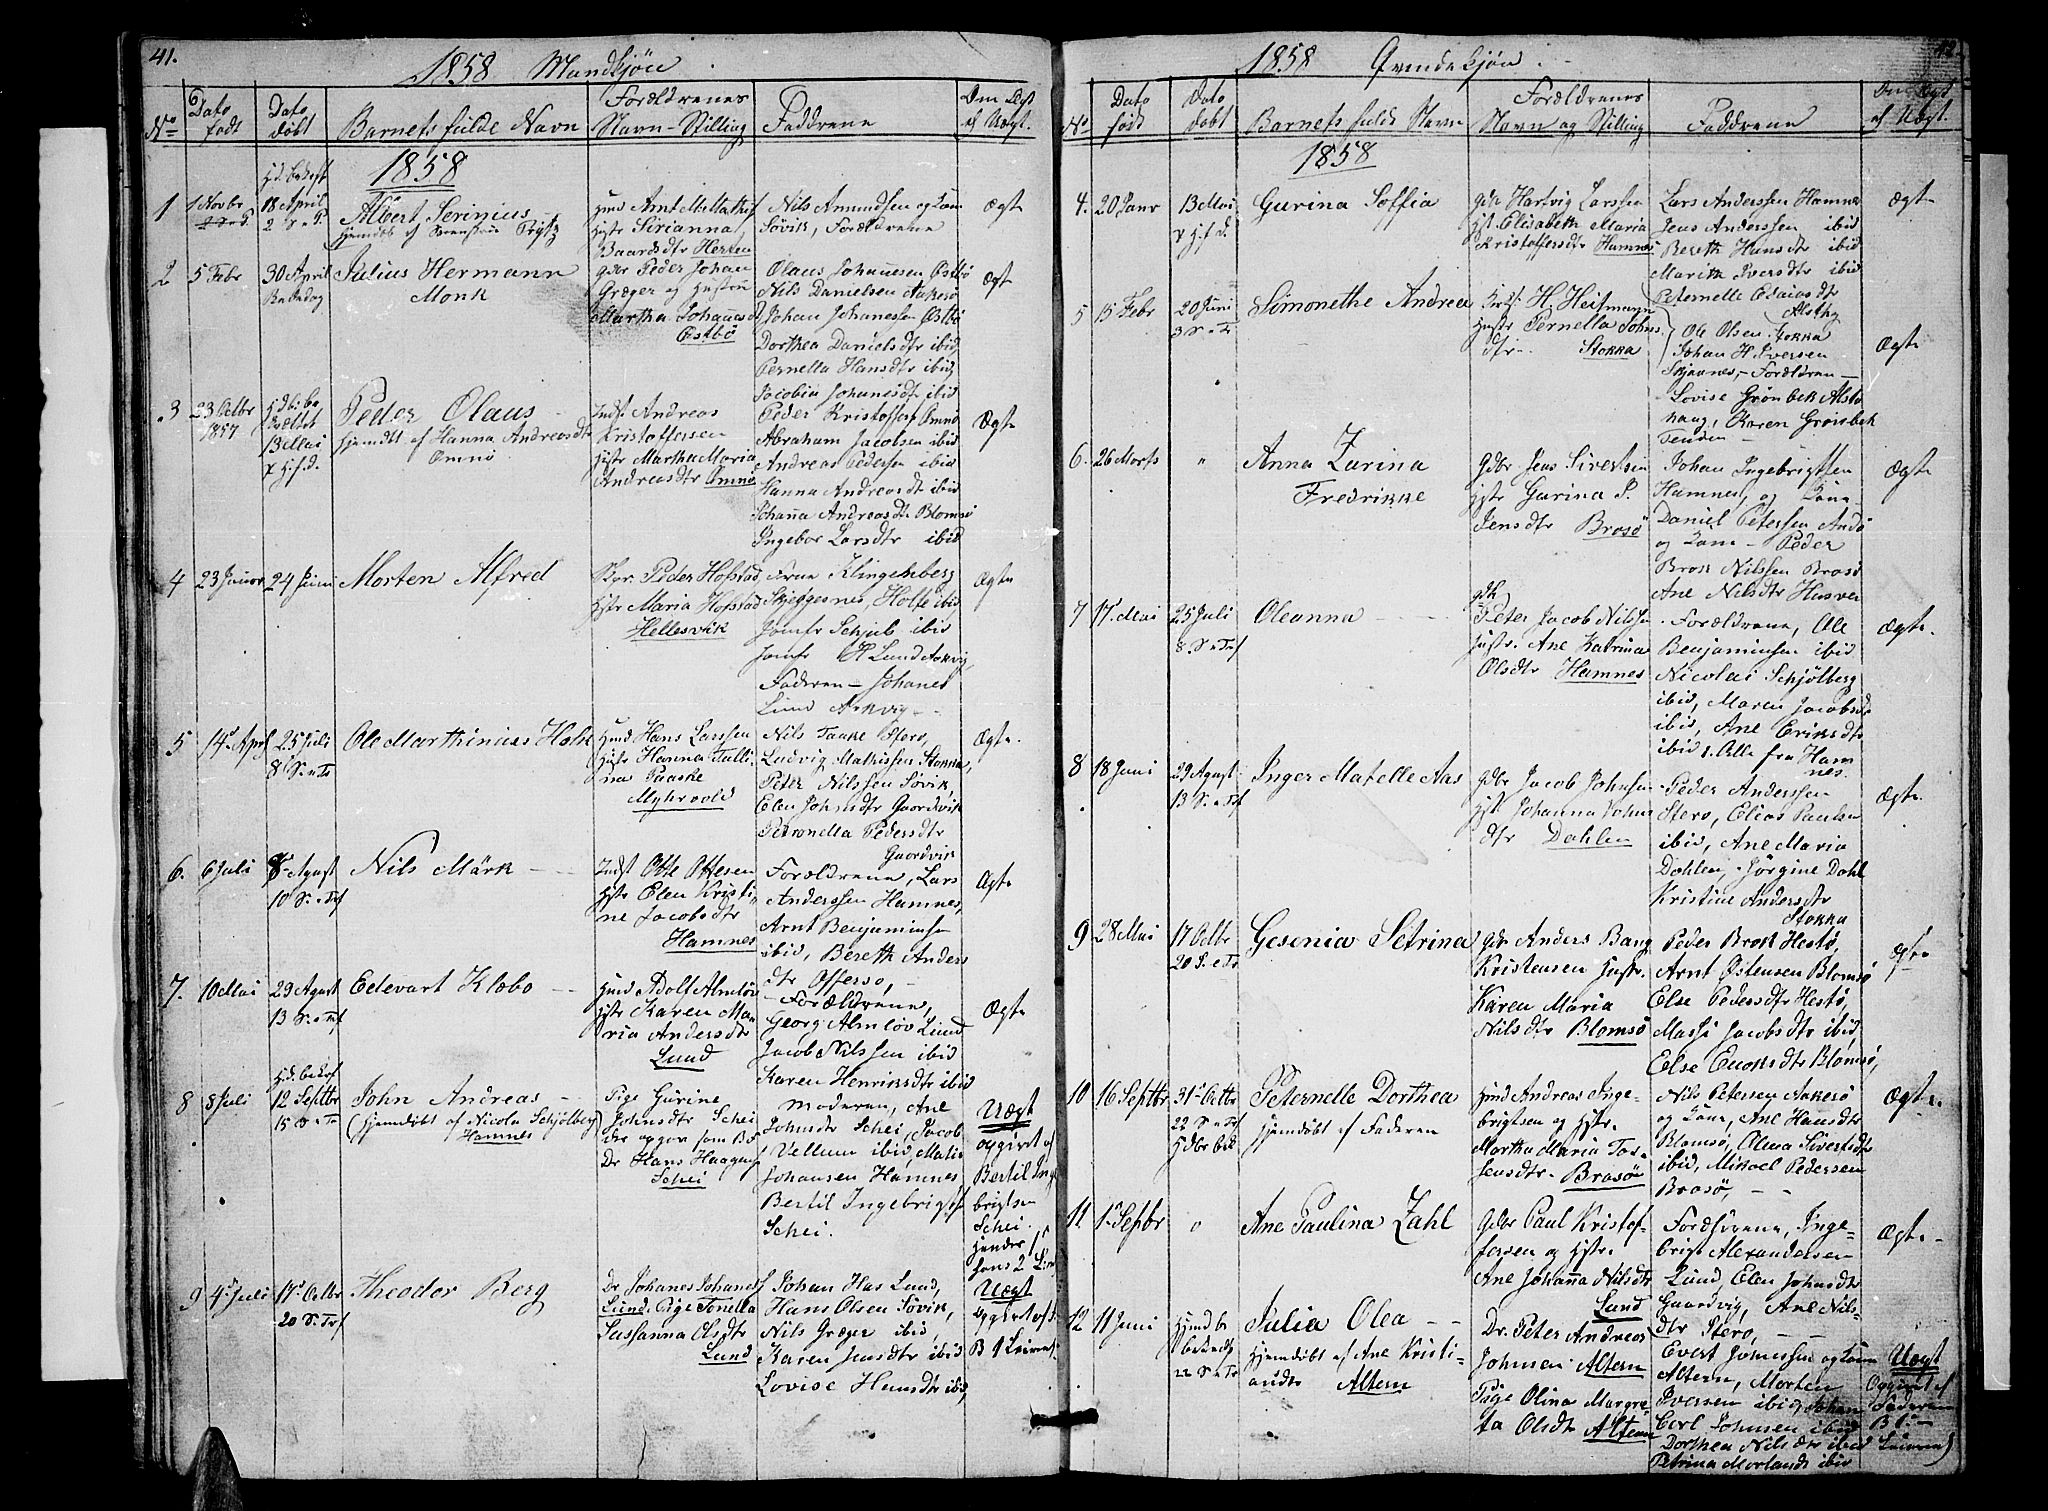 41.
1858 Mandkjøn.
No
Dato født
Dato døbt
Barnets fulde Navn
Forældrenes Navn - Stilling
Faddrene
Om Ægt el Uægt.
1858
1
1 Novbr
18 April
Albert Serinius
Hmd Arnt M. Mathis
Hstr Sirianna
Baardsdtr Herren
Nils Amundsen og Kone
Søvik, Forældrene
Ægte
2
5 Febr
30 April
Bededag
Julius Hermann
Monk
Gdbr Peder Johan
Græger og Hustru
Martha Johannsd
Østbø
Olaus Johannesen Østbø
Nils Danielsen Aakerø
Johan Johanessen Østbø
Dorthea Danielsdtr ibid
Pernella Hansdtr ibid
Jacobia Johansdtr ibid
Ægt
3
23 Octbr
1857
13 Mai
Peder Olaus
hjemdbt af Hanna Andreasdtr
Omnø
Indst Andreas
Kristoffersen
Hstr Martha Maria
Andreasdtr Omnø
Peder Kristoffers Omnø
Abraham Jacobsen ibid
Andreas Pedersen ibid
Hanna Andreasdtr ibid
Johanna Andreasdtr Blomsø
Ingebor Larsdtr ibid
Ægte
4
23 Januar
24 Juni
Morten Alfred
Peder Hofstad
Hstr Maria Hofstad
Hellesvik
Frue Klingenberg
Skjeggesnes, Holte ibid
Jomfr Schjelb ibid
Jomfr H Lund Aakvig
Faderen - Johanes
Lund Arkvig -
Ægte
5
14 April
25 Juli
8 S. e Tr
Ole Marthinius Holm
Hmd Hans Larssen
Hstr Hanna Tulli
na Paaske
Myhrvold
Nils Taake Stero,
Ludvig Mathissen Stokka,
Peter Nilssen Søvik,
Elen Johnsdtr Gaardvik
Petronella Pedersdtr
Gaardvik
Ægte.
6.
6 Juli
8 August
10 S. e Tr
Nils Märk
Indst Otte Ottesen
Hstr Elen Kristi
ne Jacobsdtr
Hamnes
Forældrene, Lars
Anderssen Hamnes,
Arnt Benjaminsen
ibid, Bereth Anders
dtr Offersø, -
Ægte
7.
10 Mai
29 Agust
13 S. e Tr
Edevart Klæbo
Hmd Adolf Almløv
Hstr Karen Ma
ria Andersdtr
Lund
Forældrene,
Georg Almløv Lund
Jacob Nilssen ibid
Karen Henriksdtr ibid
Ægte
8
8 Juli
12 Septbr
15 S e Tr
John Andreas
(hjemdøbt af Nicolai Schjølberg
Hamnes
Pige Gurine
Johnsdtr Schei
der opgav som BF
Dr Hans Haagens
Schei
Moderen, Ane
Johnsdtr Schei, Jacob
Vellum ibid, Matis
Johansen Hamnes
Bertil Ingebrigts
Schei.
Uægt
opgivet af
Bertil Inge
brigtsen
Schei.
9
4 Juli
17 Octbr
20 S. e Tr
Theodor Berg
Dr Johanes Johanes
Lund. Pige Tonella
Susanna Olsdtr
Lund
Johan Has Lund,
Hans Olsen Søvik,
Nils Græger ibid,
Karen Jensdtr ibid
Lovise Hansdtr ibid,
Uægt
42
1858 Qvindekjøn.
No
Dato født
Dato døbt
Barnets fulde Navn
Forældrenes Navn og Stilling
Faddrene
Om Ægt el Uægt.
1858
4.
20 Janr
13 Mai
Gurina Soffia
Gdbr Hartvig Larssen
Hst Elisabeth Maria
Kristoffersdtr Hamnes
Lars Anderssen Hamnes
Jens Anderssen ibid
Bereth Hansdtr ibid
Marith Iversdtr ibid
Peternelle Edvardsdtr
Alsthg
Ægte
5
15 Febr
20 Juni
3 S e Tr
Simonethe Andrea
H. Heitmann
Hstr Pernella Johns
dtr. Stokka
Ole Olsen Stokka
Johan H Iversen
Skjævnes, - Forældren -
Lovise Grønbek Alsta
haug, Karen Grønbek
Tenden -
Ægte
6.
26 Marts
"
Anna Zarina
Fredrikke
Gdbr Jens Sivertsen
Hstr Gurina P.
Jensdtr Brasø
Johan Ingebrigtsen
Hamnes, og Kone -
Daniel Petersen Andø
og Kone - Peder
Brok Nilssen Brasø
Ane Nilsdtr Husvær
Ægte
7
17 Mai
25 Juli
8. S e Tr
Oleanna
Peter Jacob Nilssen
Hustr. Ane Katrina
Olsdtr Hamnes
Forældrene, Ole
Benjaminsen ibid
Nicolai Schjølberg
ibid, Maren Jacobsdtr
ibid, Ane Eriksdtr
ibid. Alle fra Ham
nes.
Ægte.
8
18 Juni
29 Agust
13 S. e Tr
Inger Matelle Aas
Gdbr Jacob Johnsen
Hst Johanna Johns
dtr Dahlen
Peder Anderssen
Stero, Elias Paulsen
ibid, Ane Maria
Dahlen, Jørgine Dahl
Kristine Andersdtr
Stokka
Ægte.
9
28 Mai
17 Octbr
20 S. e Tr
Gesenia Petrina
Gdbr Anders Bang
Kristensen Hustr.
Karen Maria
Nilsdtr Blomsø
Peder Brok Hestø,
Arnt Østensen Blomsø
Else Pedersdtr Hestø,
Massi Jacobsdtr ibid,
Else Enoksdtr Blomsø,
Ægte
10
16 Septbr
31 Octbr
22 S e Tr
Peternelle Dorthea
hjemdøbt af Faderen
Hmd Andreas Inge-
brigtsen og Hstr.
Martha Maria Tor-
sensdtr. Brasø
Nils Petersen Aakerø
og Kone, Ane Hansdtr
Blomsø, Olina Sivertsdtr
ibid, Mikael Pedersen
Brasø, - -
Ægte.
11
1 Septbr
"
Ane Paulina Zahl
Gdbr Paul Kristof-
fersen og Hstr.
Ane Johanna Nilsdtr
Lund
Forældrene, Inge-
brigt Alexandersen
Lund, Elen Johnsdtr
Gaardvig, Ane Nils-
dtr Stero, - -
Ægte -
12
11 Juni
22 S e Tr
Julia Olea
hjemdøbt af Ane Kristi-
ansdtr Altern
Dr. Peter Andreas
Johnsen Altern
Pige Olina Margre
ta Olsdtr Altern
Evert Johnssen og Kone
Altern, Morten
Iversen ibid, Johan
Carl Johnsen ibid
Dorthea Nilsdtr ibid
Petrina Morlands ibid
Uægt
Opgivet af
Faderen